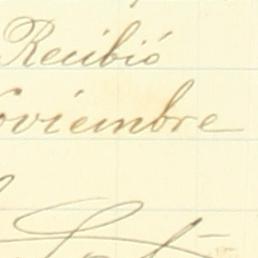 Recibió
oviembre